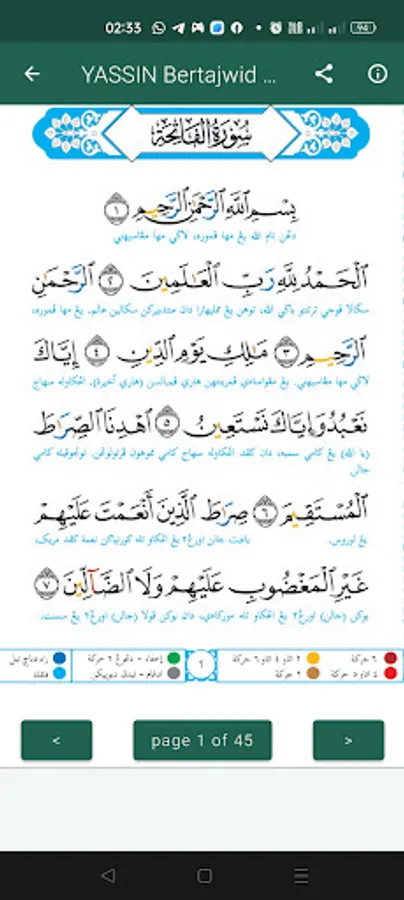 02:33
94
YASSIN Bertajwid ...
سُورَةُ الْفَاتِحَة
بِسْمِ اللَّهِ الرَّحْمَٰنِ الرَّحِيمِ ١
دڠن نام الله يڠ مها ڤموره، لاݢي مها مڠاسيهني
الْحَمْدُ لِلَّهِ رَبِّ الْعَالَمِينَ ٢ الرَّحْمَٰنِ
سݢالا ڤوجي ترتنتو باݢي الله، توهن يڠ مميليهارا دان منتدبيركن سكالين عالم. يڠ مها ڤموره،
الرَّحِيمِ ٣ مَالِكِ يَوْمِ الدِّينِ ٤ إِيَّاكَ
لاݢي مها مڠاسيهني. يڠ مڠواساءي ڤمرينتهن هاري ڤمبالسن (هاري أخيرة). اڠكاوله سهاج
نَعْبُدُ وَإِيَّاكَ نَسْتَعِينُ ٥ اهْدِنَا الصِّرَاطَ
(يا الله) يڠ كامي سمبه، دان كڤد اڠكاوله سهاج كامي مموهون ڤرتولوڠن. تونجوقيله كامي
جالن
الْمُسْتَقِيمَ ٦ صِرَاطَ الَّذِينَ أَنْعَمْتَ عَلَيْهِمْ
يڠ لوروس. يأيت جالن اورڠ٢ يڠ اڠكاو تله كورنياكن نعمة كڤد مريك،
غَيْرِ الْمَغْضُوبِ عَلَيْهِمْ وَلَا الضَّالِّينَ ٧
بوكن (جالن) اورڠ٢ يڠ اڠكاو تله موركاءي، دان بوكن ڤولا (جالن) اورڠ٢ يڠ سست.
٦ حركة
٢ اتاو ٤ اتاو ٦ حركة
1
٤ اتاو ٥ حركة
٢ حركة
قلقلة
<
page 1 of 45
>